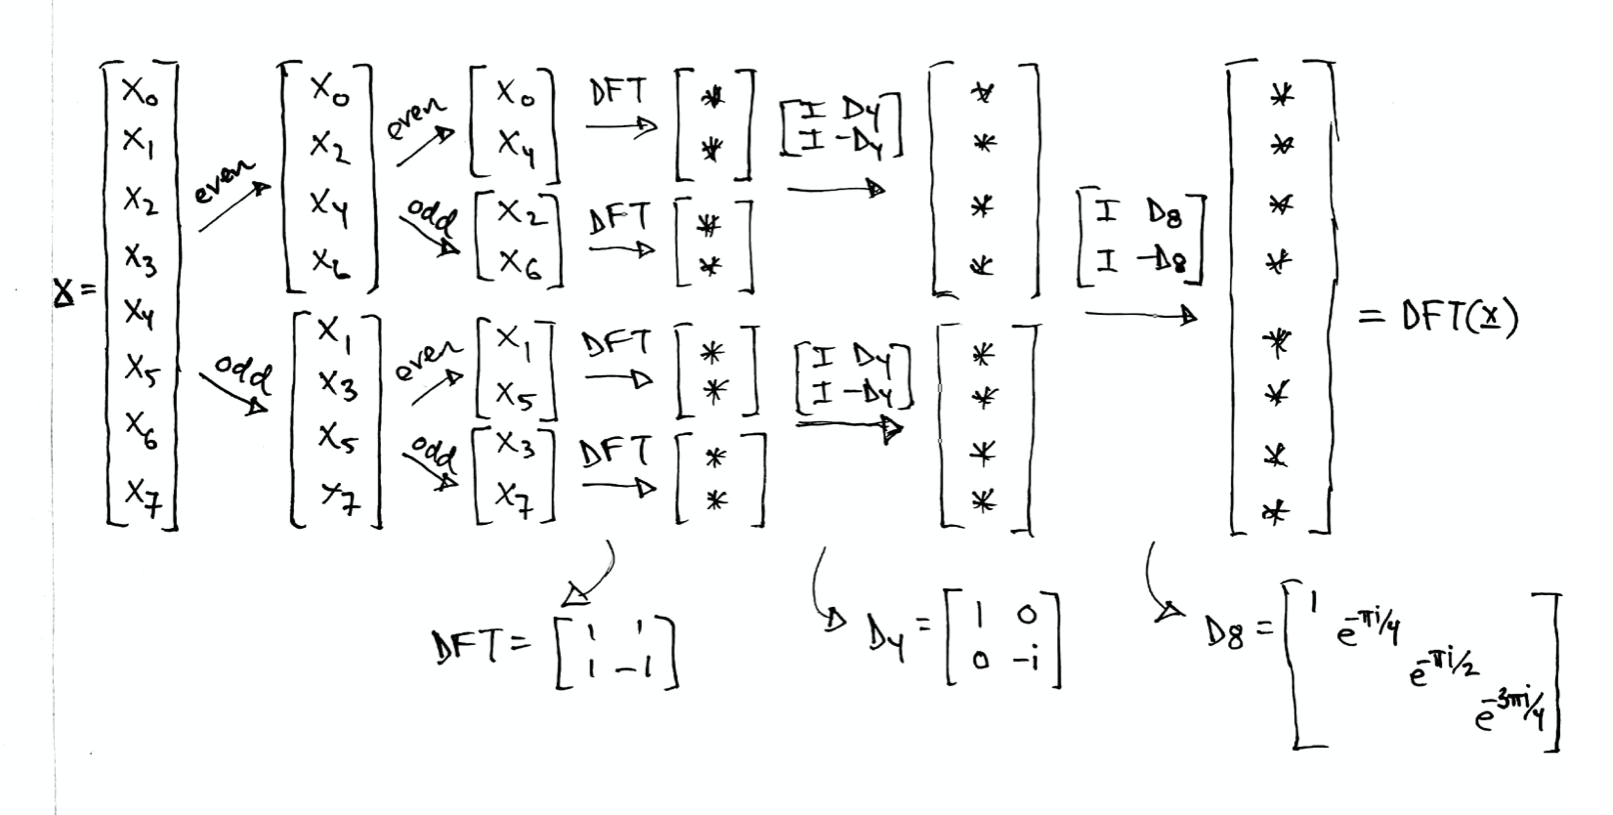 X = [X₀ X₁ X₂ X₃ X₄ X₅ X₆ X₇]
even
[X₀ X₂ X₄ X₆]
even
[X₀ X₄]
DFT
[* *]
[I D₄
I -D₄]
[* * * *]
odd
[X₂ X₆]
DFT
[* *]
odd
[X₁ X₃ X₅ X₇]
even
[X₁ X₅]
DFT
[* *]
[I D₄
I -D₄]
[* * * *]
odd
[X₃ X₇]
DFT
[* *]
[I D₈
I -D₈]
[* * * * * * * *]
= DFT(x)
DFT = [1 1
1 -1]
D₄ = [1 0
0 -i]
D₈ = [1
e^-πi/4
e^-πi/2
e^-3πi/4]